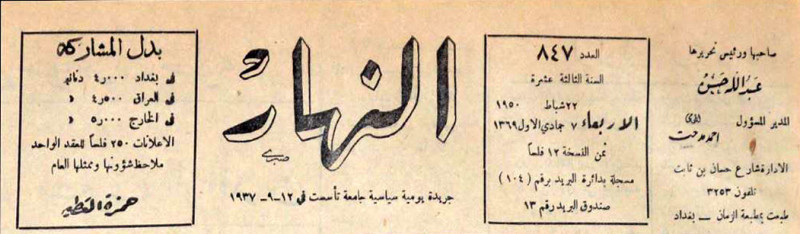 صاحبها ورئيس تحريرها
عبدالله حسن
المدير المسؤول
احمد مدحت
الادارة شارع حسان بن ثابت
تلفون ٣٢٥٣
طبعت بمطبعة الزمان — بغداد
العدد ٨٤٧
السنة الثالثة عشرة
٢٢ شباط ١٩٥٠
الاربعاء ٧ جمادي الاول ١٣٦٩
ثمن النسخة ١٢ فلساً
مسجلة بدائرة البريد برقم (١٠٤)
صندوق البريد رقم ١٣
النهار
صبري
جريدة يومية سياسية جامعة تأسست في ١٢-٩-١٩٣٧
بدل المشاركة
في بغداد ٤٫٠٠٠ دنانير
في العراق ٤٫٥٠٠ »
في الخارج ٥٫٠٠٠ »
الاعلانات ٢٥٠ فلساً للعقد الواحد
ملاحظ شؤونها وممثلها العام
حمزة